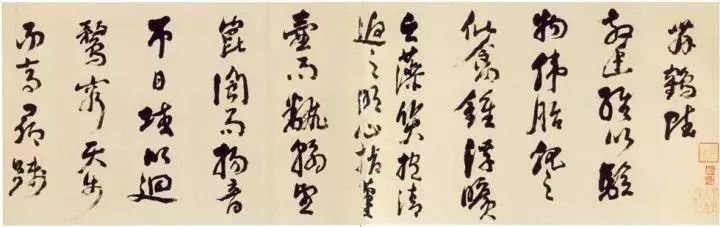 舞鶴賦
散幽經以驗
物偉胎化之
仙禽鍾浮曠
之藻質抱清
迥之明心指蓬
壺而飜翰望
崑閬而揚音
帀日域以迴
鶩窮天步
而高尋踐